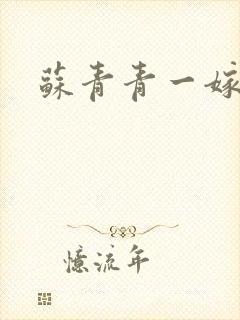 蘇青青一嫁
憶流年